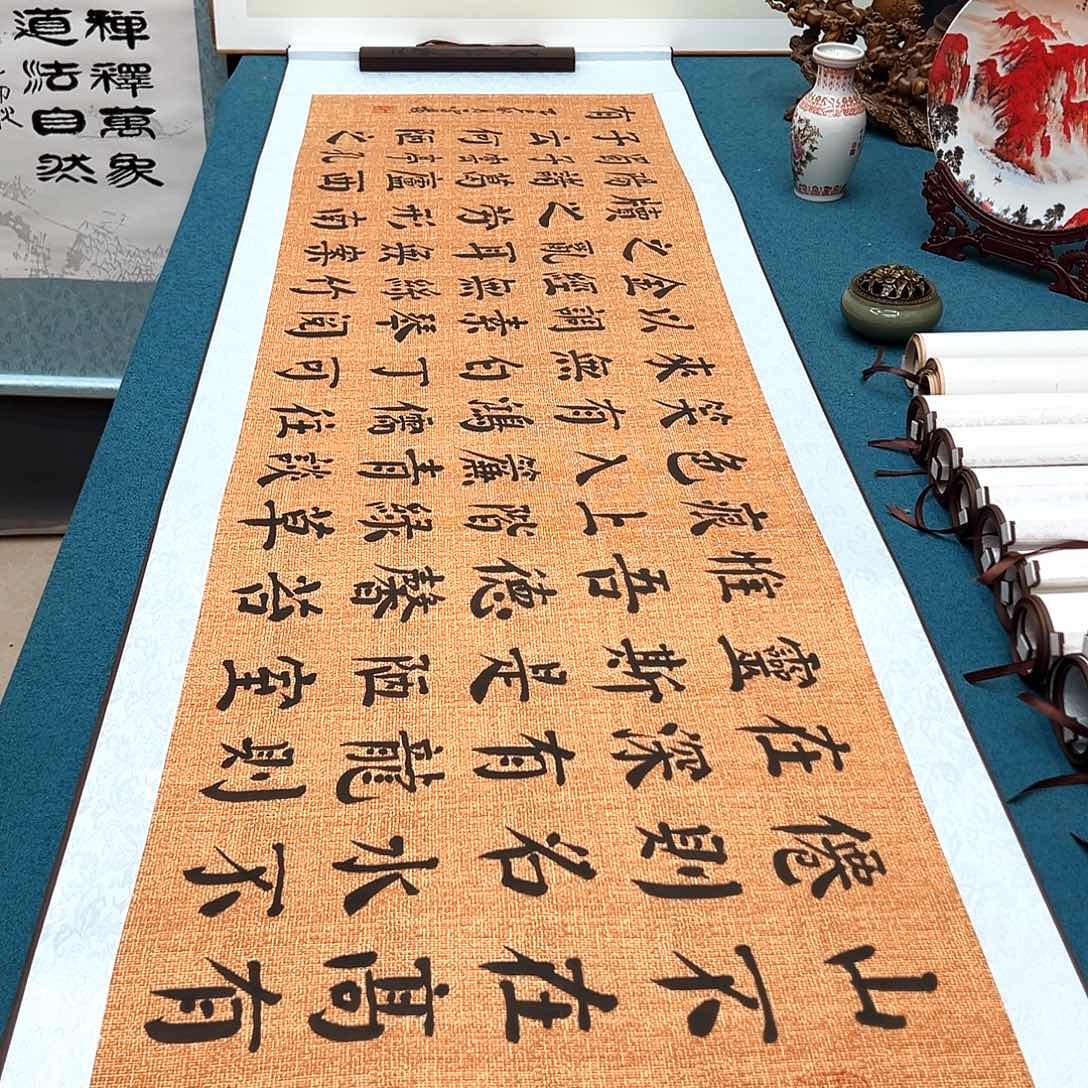 禪釋萬象
道法自然
山不在高有
僊則名水不
在深有龍則
靈斯是陋室
惟吾德馨苔
痕上階綠草
色入簾青談
笑有鴻儒往
來無白丁可
以調素琴閱
金經無絲竹
之亂耳無案
牘之勞形南
陽諸葛廬西
蜀子雲亭孔
子云何陋之
有